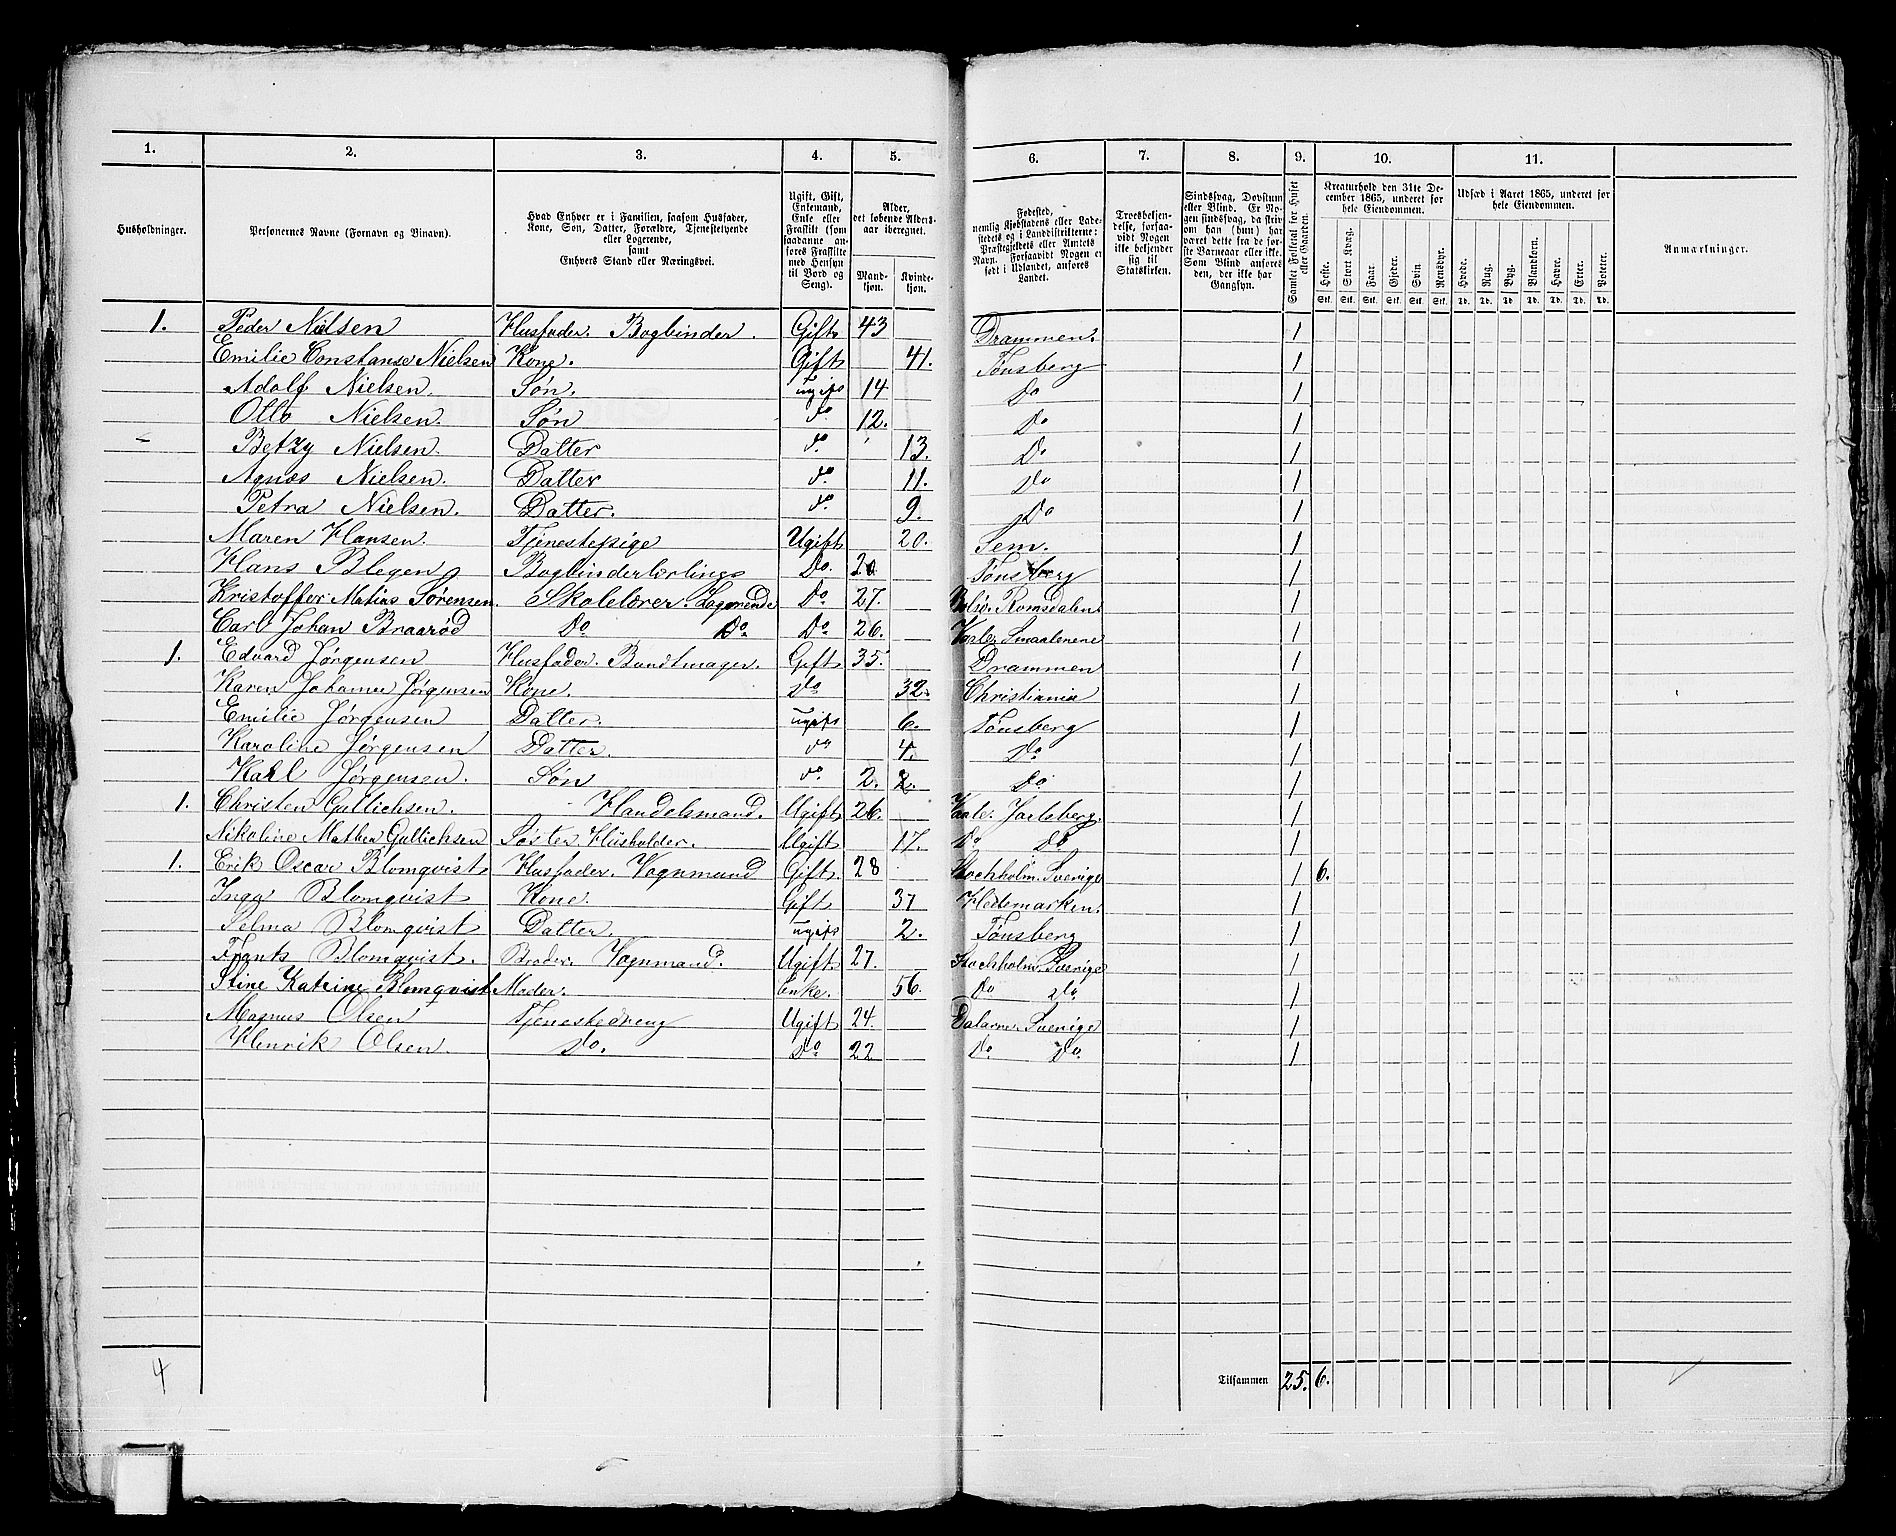 1. 2. 3. 4. 5. 6. 7. 8. 9. 10. 11.
Husholdninger.
Personernes Navne (Fornavn og Vinavn).
Hvad Enhver er i Familien, saasom Husfader, Kone, Søn, Datter, Forældre, Tjenestetyende eller Logerende, samt Enhvers Stand eller Næringsvei.
Ugift, Gift, Enkemand, Enke eller Fraskilt (som saadanne anføres Fraskilte med Hensyn til Bord og Seng).
Alder, det løbende Aldersaar iberegnet.
Mandkjøn. Kvindekjøn.
Fødested, nemlig Kjøbstadens eller Ladestedets og i Landdistrikterne: Præstegjeldets eller Amtets Navn. Forsaavidt Nogen er født i Udlandet, anføres Landet.
Troesbekjendelse, forsaavidt Nogen ikke bekjender sig til Statskirken.
Sindssvag, Døvstum eller Blind. Er Nogen sindssvag, da skrives om han (hun) har været dette fra de første Barneaar eller ikke. Som Blind anføres den, der ikke har Gangsyn.
Samlet Folketal for Huset eller Gaarden.
Kreaturhold den 31te December 1865, underet for hele Eiendommen.
Heste. Stort Kvæg. Faar. Gjeder. Svin. Rensdyr.
Stk. Stk. Stk. Stk. Stk. Stk.
Udsæd i Aaret 1865, underet for hele Eiendommen.
Hvede. Rug. Byg. Blandkorn. Havre. Erter. Poteter.
Td. Td. Td. Td. Td. Td. Td.
Anmærkninger.
1. Peder Nielsen Husfader. Bogbinder. Gift 43 Drammen. 1
Emilie Constanse Nielsen Kone. Gift 41. Tønsberg 1
Adolf Nielsen. Søn. ugift 14 Do 1
Otto Nielsen. Søn do 12. Do 1
Betzy Nielsen. Datter do. 13. Do 1
Agnes Nielsen. Datter do. 11. Do 1
Petra Nielsen. Datter. do 9. Do 1
Maren Hansen. Tjenestepige Ugift 20. Sem. 1
Hans Blegen Bogbinderlærling Do. 20 Tønsberg 1
Kristoffer Matias Sørensen. Skolelærer. Logerende Do 27. Bolsø. Romsdalen. 1
Carl Johan Braarød Do Do. Do 26. Smaalenene 1
1. Edvard Jørgensen Husfader. Bundtmager. Gift 35. Drammen 1
Karen Johanne Jørgensen Kone. Do 32. Christiania 1
Emilie Jørgensen Datter. ugift 6. Tønsberg 1
Karoline Jørgensen Datter. do 4. Do 1
Karl Jørgensen. Søn do. 2. 2. Do 1
1. Christen Gullichsen. Handelsmand. Ugift 26. Vaale. Jarlsberg. 1
Nikoline Mathea Gullichsen Søster Husholder. Ugift 17. Do Do 1
1. Erik Oscar Blomqvist. Husfader. Vognmand Gift. 28 Stochholm. Sverige 1 6.
Inga Blomqvist Kone. Gift 37 Hedemarken. 1
Selma Blomqvist Datter. ugift 2. Tønsberg 1
Frants Blomqvist. Broder. Vognmand. Ugift 27. Stochholm. Sverige 1
Stine Katrine Blomqvist Moder. Enke. 56. Do Do 1
Magnus Olsen Tjenestedreng Ugift 24. Dalarne. Sverige 1
Henrik Olsen. Do. Do 22 Do Do 1
4 Tilsammen 25. 6.